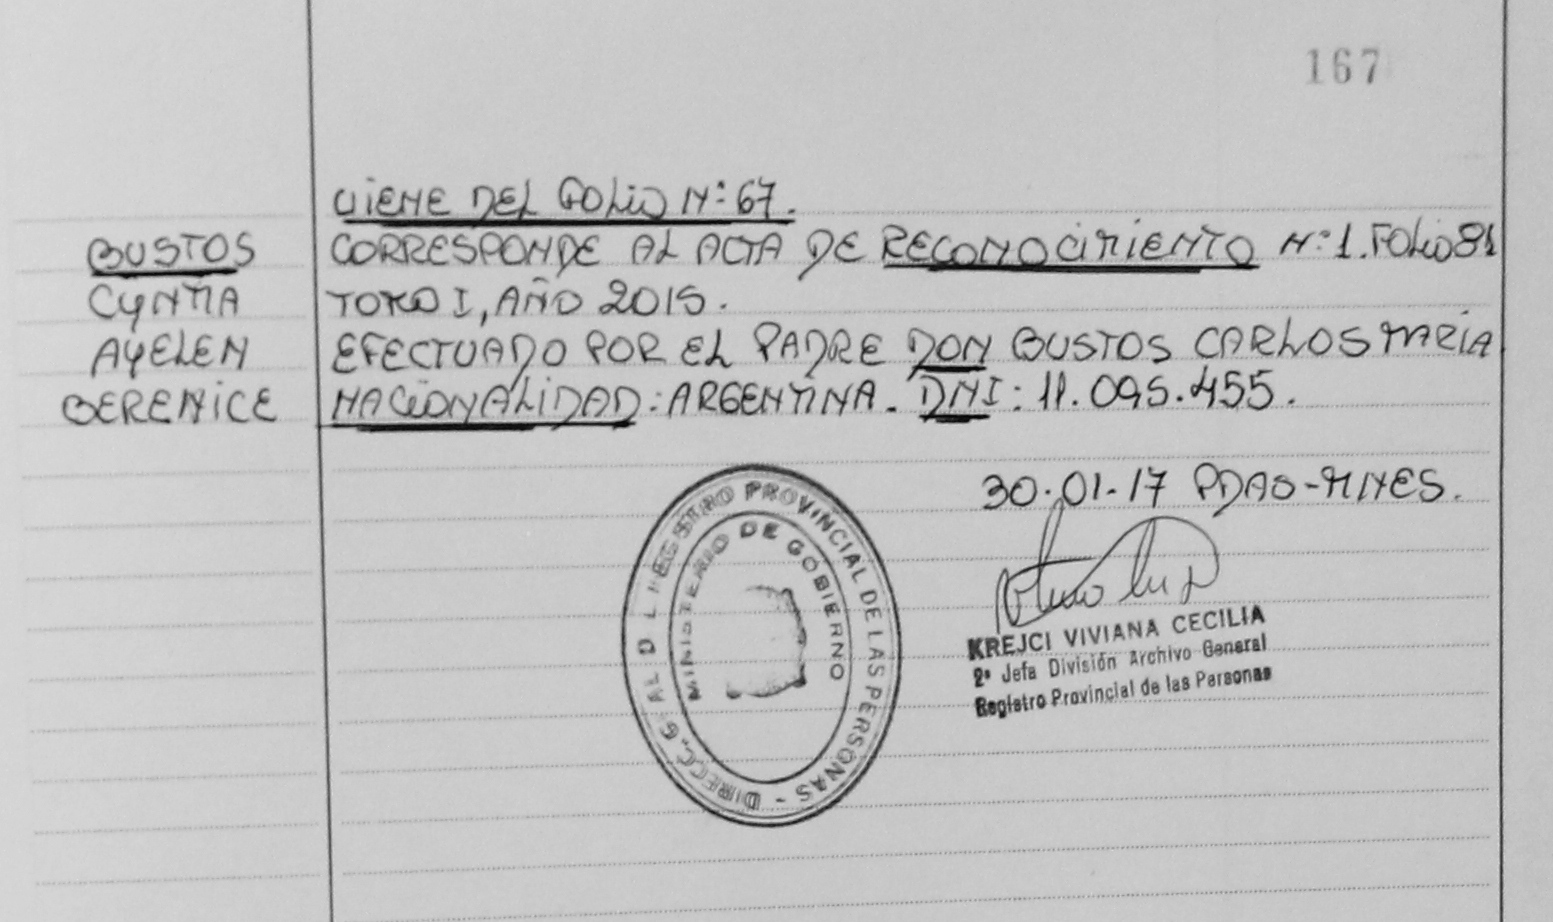 167
VIENE DEL FOLIO Nº 67.
BUSTOS CORRESPONDE AL ACTA DE RECONOCIMIENTO Nº 1. FOLIO 81
CYNTIA TOMO I, AÑO 2015.
AYELEN EFECTUADO POR EL PADRE DON BUSTOS CARLOS MARIA
BERENICE NACIONALIDAD: ARGENTINA. DNI: 11.095.455.
30.01.17 PDAS-MINES.
DIRECC. G AL D L REGISTRO PROVINCIAL DE LAS PERSONAS -
MINISTERIO DE GOBIERNO
KREJCI VIVIANA CECILIA
2º Jefa División Archivo General
Registro Provincial de las Personas